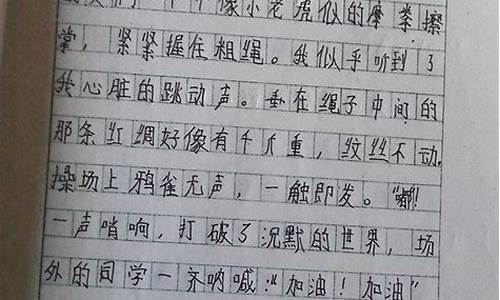 个个像小老虎似的摩拳擦
掌，紧紧握住粗绳。我似乎听到了
我心脏的跳动声。垂在绳子中间的
那条红绸好像有千斤重，纹丝不动。
操场上鸦雀无声，一触即发。“嘟！
一声哨响，打破了沉默的世界，场
外的同学一齐呐喊：“加油！加油”